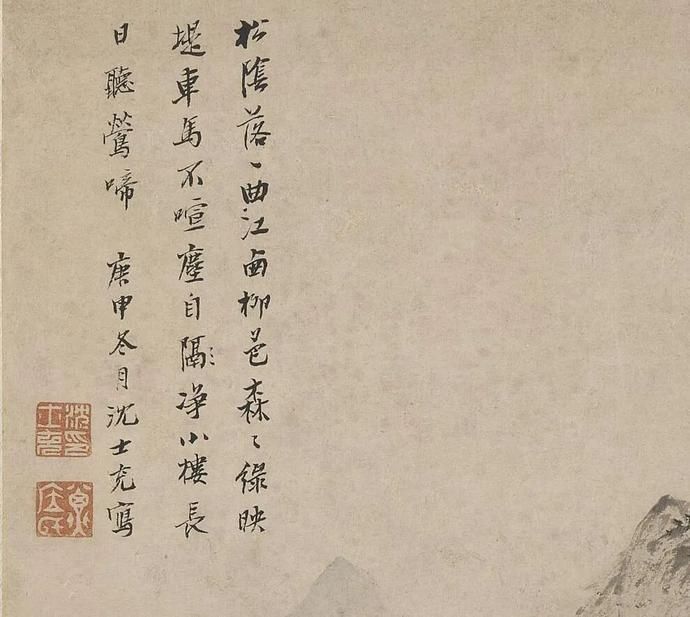 松陰落〻曲江卥柳色森〻綠映
堤車馬不喧塵自隔净小樓長
日聽鶯啼 庚申冬月沈士充寫
沈印士充